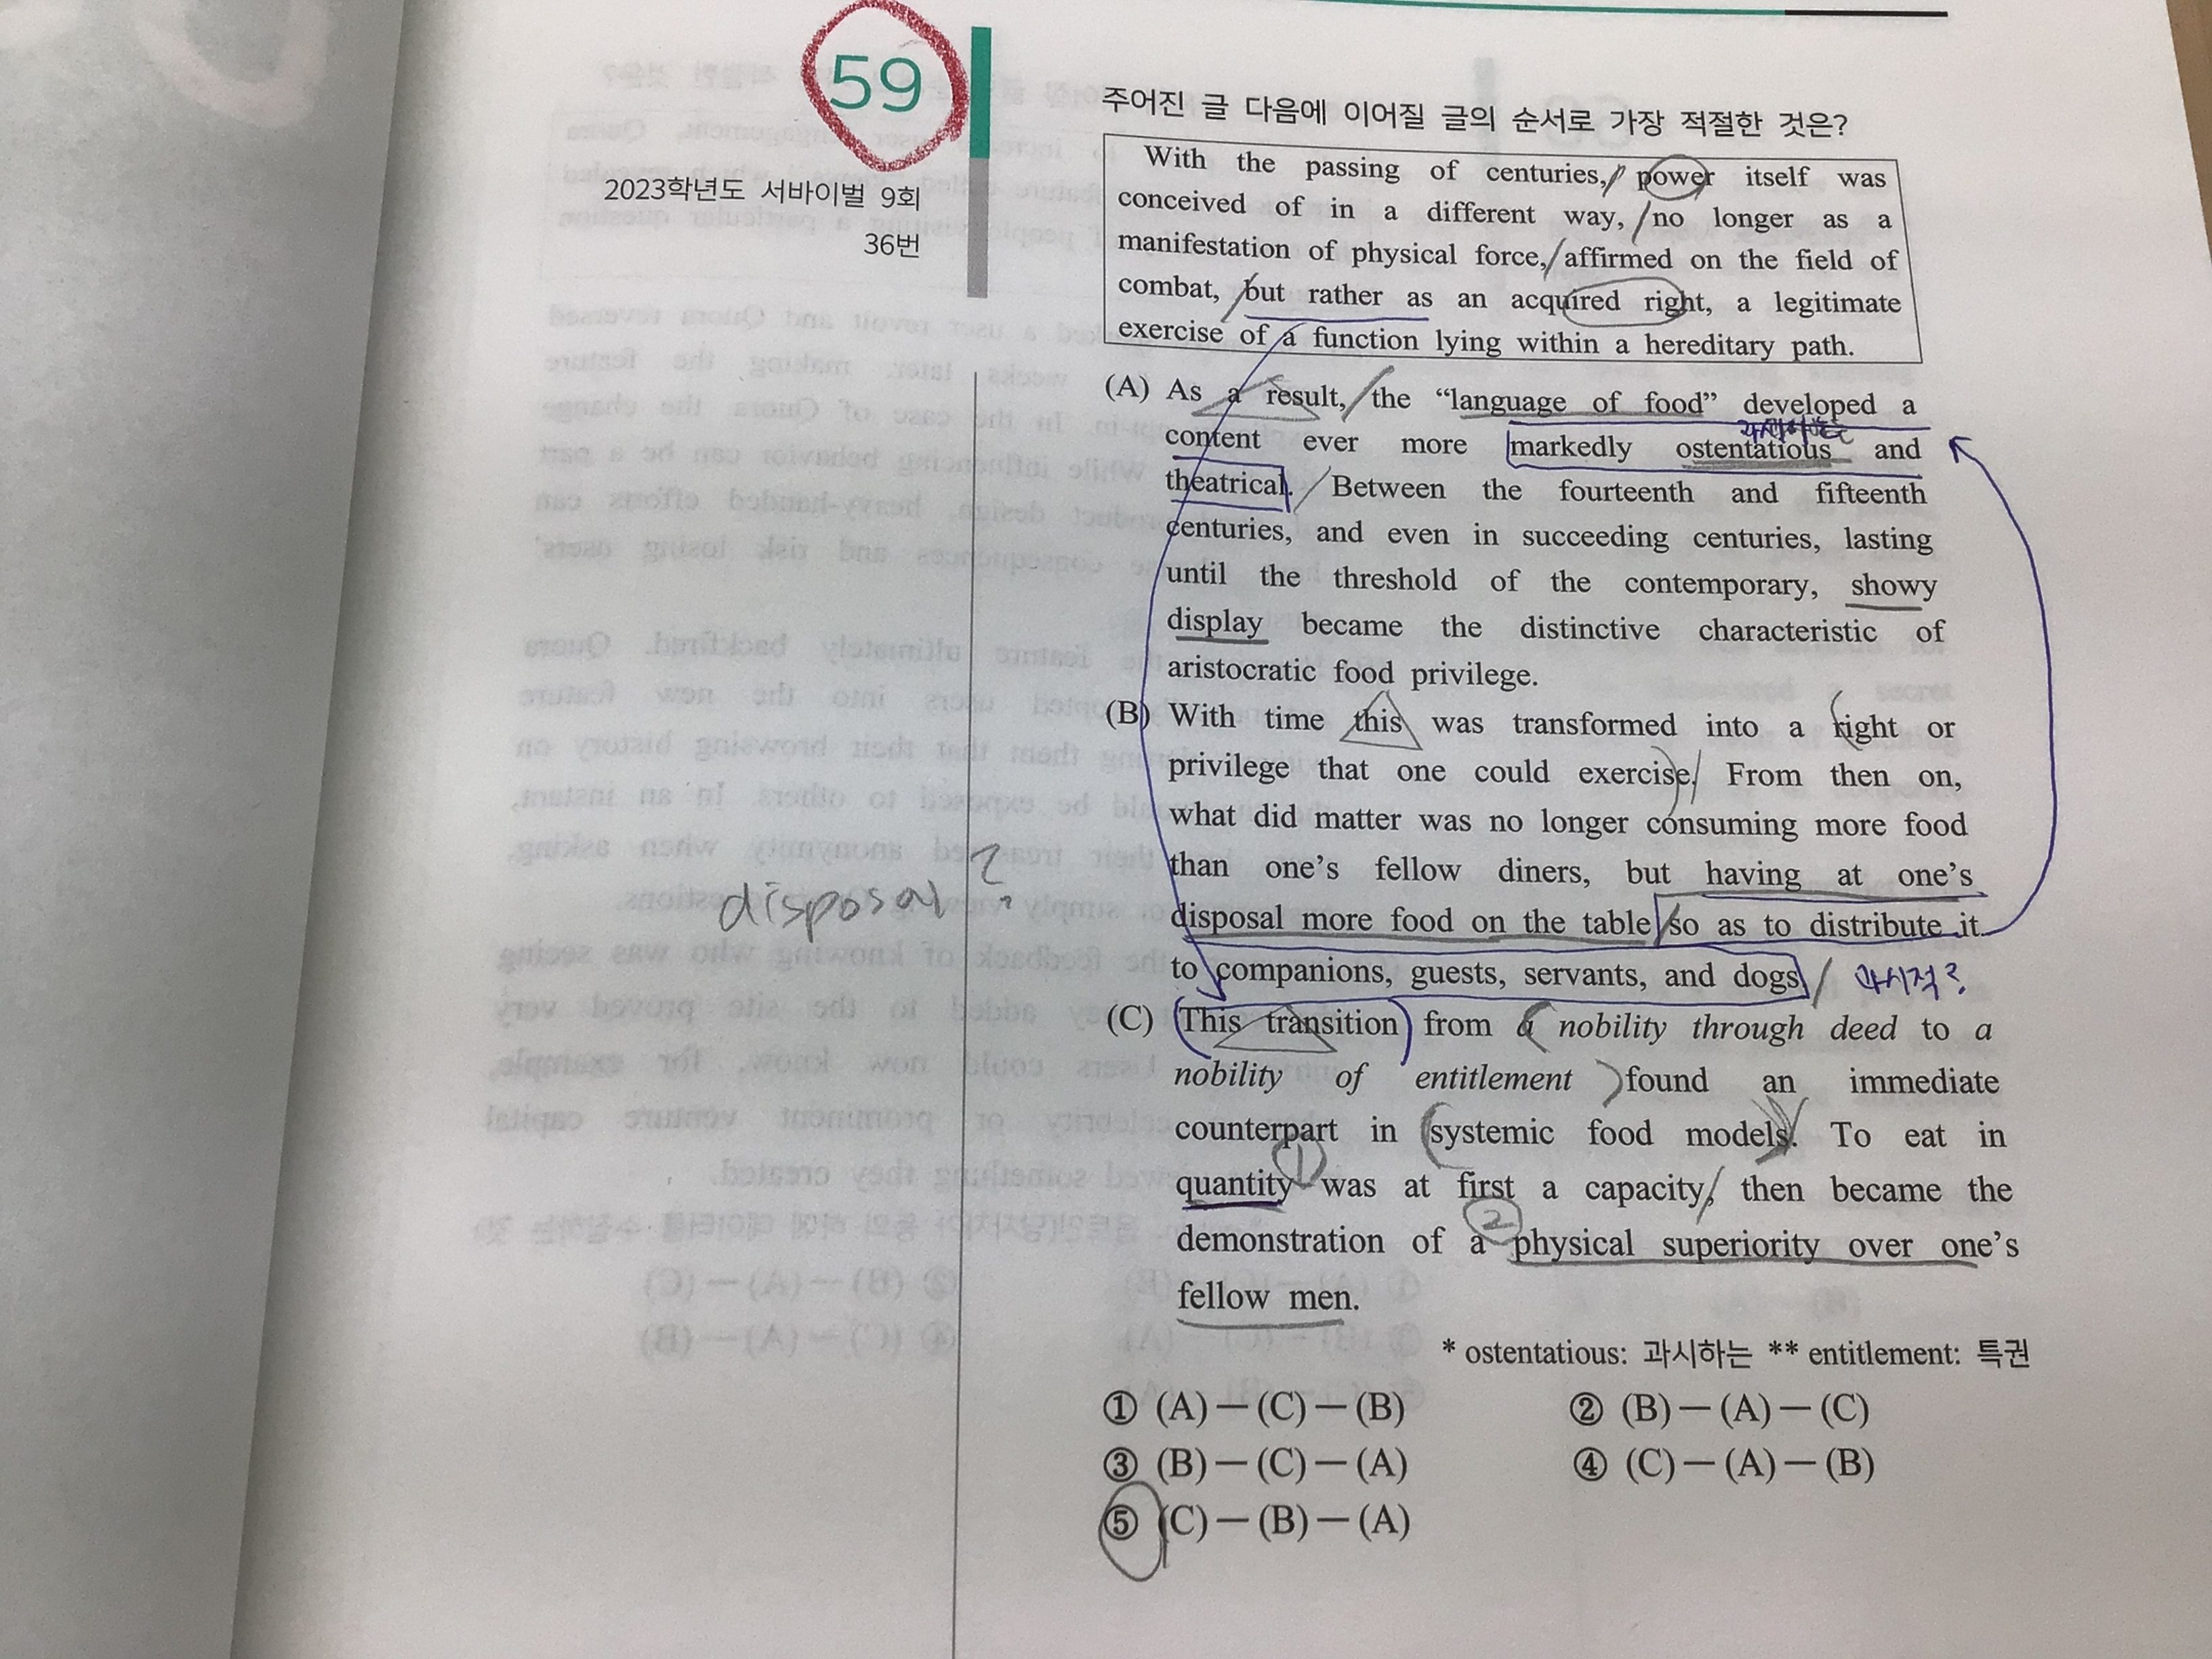 59
2023학년도 서바이벌 9회
36번
주어진 글 다음에 이어질 글의 순서로 가장 적절한 것은?
With the passing of centuries, power itself was
conceived of in a different way, no longer as a
manifestation of physical force, affirmed on the field of
combat, but rather as an acquired right, a legitimate
exercise of a function lying within a hereditary path.
(A) As a result, the “language of food” developed a
content ever more markedly ostentatious and
theatrical. Between the fourteenth and fifteenth
centuries, and even in succeeding centuries, lasting
until the threshold of the contemporary, showy
display became the distinctive characteristic of
aristocratic food privilege.
(B) With time this was transformed into a right or
privilege that one could exercise. From then on,
what did matter was no longer consuming more food
than one’s fellow diners, but having at one’s
disposal more food on the table so as to distribute it
to companions, guests, servants, and dogs.
과시적?
disposal ?
(C) This transition from a nobility through deed to a
nobility of entitlement found an immediate
counterpart in systemic food models. To eat in
quantity was at first a capacity, then became the
①
demonstration of a physical superiority over one’s
②
fellow men.
* ostentatious: 과시하는 ** entitlement: 특권
① (A)－(C)－(B) ② (B)－(A)－(C)
③ (B)－(C)－(A) ④ (C)－(A)－(B)
⑤ (C)－(B)－(A)